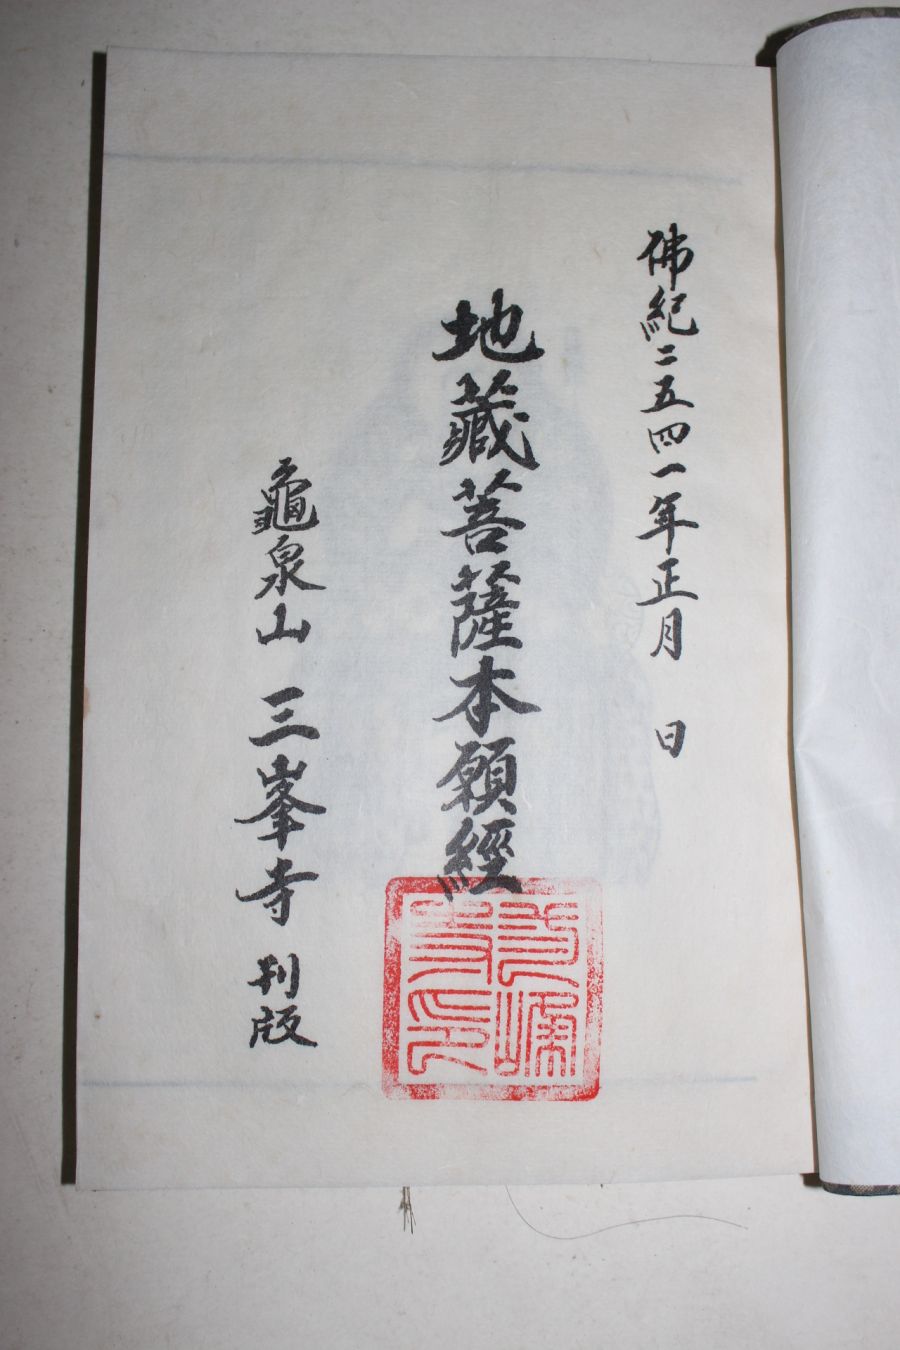 佛紀二五四一年正月 日
地藏菩薩本願經
龜泉山 三峯寺 刊版